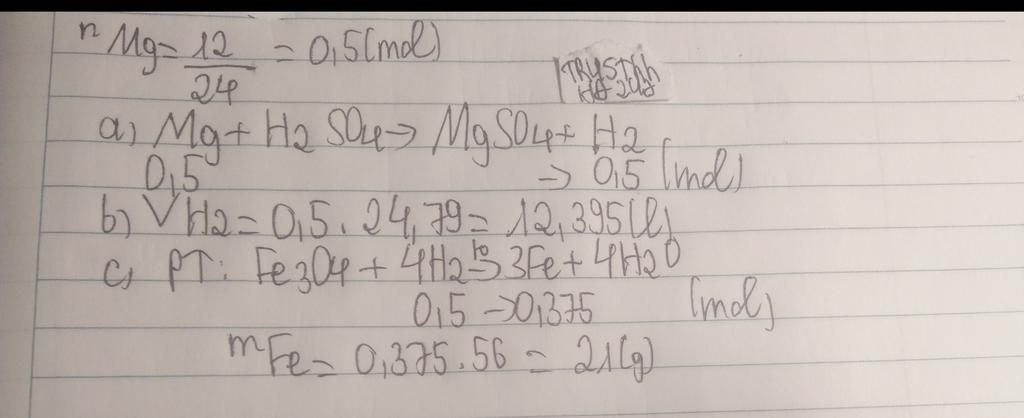 nMg = 12/24 = 0,5 (mol)
a) Mg + H2SO4 → MgSO4 + H2
0,5 → 0,5 (mol)
b) VH2 = 0,5 . 24,79 = 12,395 (l)
c) PT: Fe3O4 + 4H2 to→ 3Fe + 4H2O
0,5 → 0,375 (mol)
mFe = 0,375 . 56 = 21 (g)